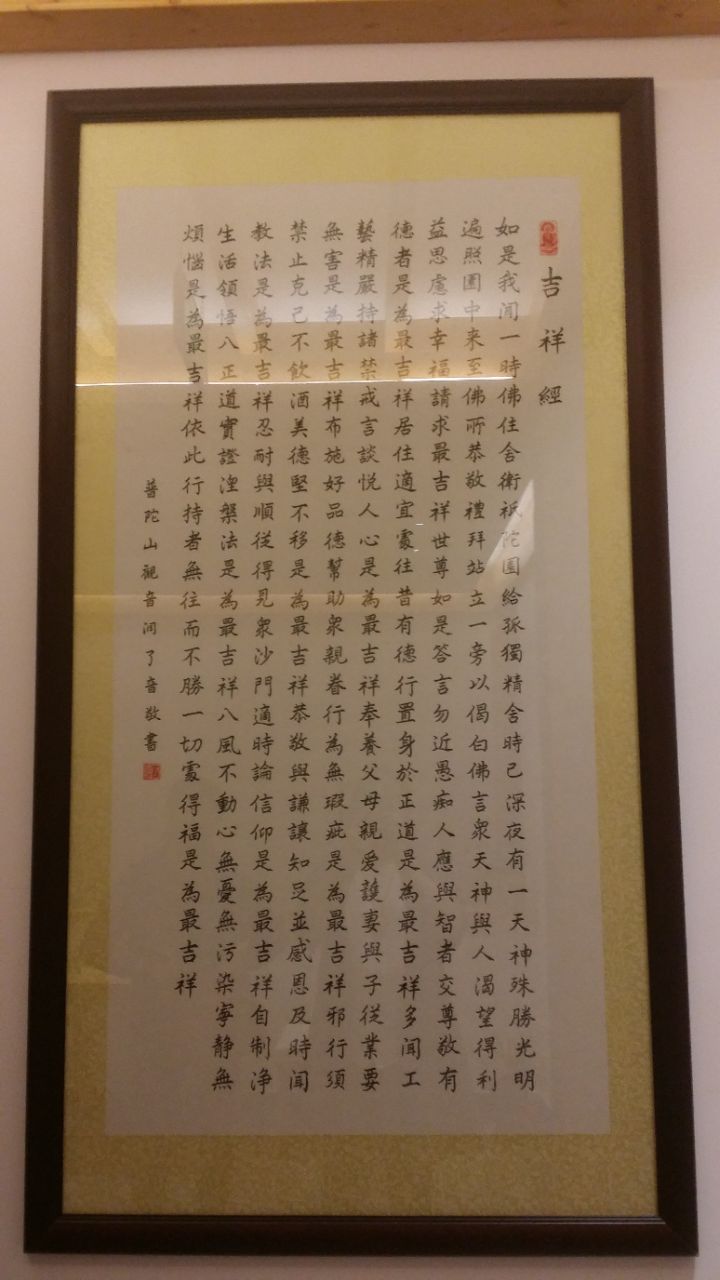 吉祥經
如是我闻一時佛住舍衛祇陀園給孤獨精舍時已深夜有一天神殊勝光明
遍照園中来至佛所恭敬禮拜站立一旁以偈白佛言衆天神與人渴望得利
益思慮求幸福請求最吉祥世尊如是答言勿近愚痴人應與智者交尊敬有
德者是為最吉祥居住適宜處往昔有德行置身於正道是為最吉祥多闻工
藝精嚴持諸禁戒言談悦人心是為最吉祥奉養父母親愛護妻與子從業要
無害是為最吉祥布施好品德幫助衆親眷行為無瑕疵是為最吉祥邪行須
禁止克己不飲酒美德堅不移是為最吉祥恭敬與謙讓知足並感恩及時闻
教法是為最吉祥忍耐與順從得見衆沙門適時論信仰是為最吉祥自制净
生活領悟八正道實證涅槃法是為最吉祥八風不動心無憂無污染寧静無
煩惱是為最吉祥依此行持者無往而不勝一切處得福是為最吉祥
普陀山觀音洞了音敬書